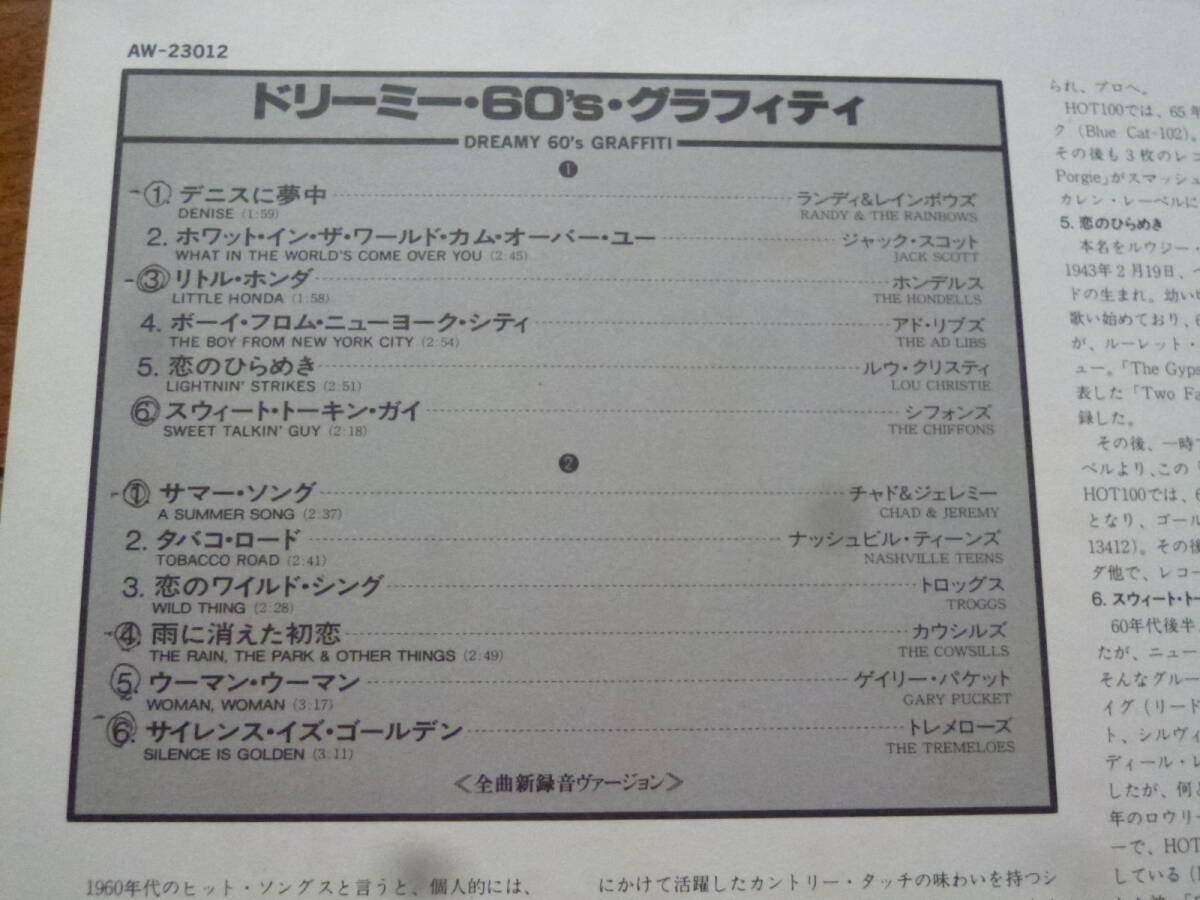 AW-23012
ドリーミー・60's・グラフィティ
DREAMY 60's GRAFFITI
❶
①. デニスに夢中 ランディ&レインボウズ
DENISE (1:59) RANDY & THE RAINBOWS
2. ホワット・イン・ザ・ワールド・カム・オーバー・ユー ジャック・スコット
WHAT IN THE WORLD'S COME OVER YOU (2:45) JACK SCOTT
③ リトル・ホンダ ホンデルス
LITTLE HONDA (1:58) THE HONDELLS
4. ボーイ・フロム・ニューヨーク・シティ アド・リブズ
THE BOY FROM NEW YORK CITY (2:54) THE AD LIBS
5. 恋のひらめき ルウ・クリスティ
LIGHTNIN' STRIKES (2:51) LOU CHRISTIE
⑥ スウィート・トーキン・ガイ シフォンズ
SWEET TALKIN' GUY (2:18) THE CHIFFONS
❷
①. サマー・ソング チャド&ジェレミー
A SUMMER SONG (2:37) CHAD & JEREMY
2. タバコ・ロード ナッシュビル・ティーンズ
TOBACCO ROAD (2:41) NASHVILLE TEENS
3. 恋のワイルド・シング トロッグス
WILD THING (2:28) TROGGS
④ 雨に消えた初恋 カウシルズ
THE RAIN, THE PARK & OTHER THINGS (2:49) THE COWSILLS
⑤. ウーマン・ウーマン ゲイリー・パケット
WOMAN, WOMAN (3:17) GARY PUCKET
⑥. サイレンス・イズ・ゴールデン トレメローズ
SILENCE IS GOLDEN (3:11) THE TREMELOES
〈全曲新録音ヴァージョン〉
1960年代のヒット・ソングスと言うと、個人的には、
にかけて活躍したカントリー・タッチの味わいを持つシ
られ、プロへ。
HOT100では、65年
ク (Blue Cat-102)。
その後も3枚のレコ
Porgie」がスマッシュ
カレン・レーベルに
5. 恋のひらめき
本名をルウジー・
1943年2月19日、
ドの生まれ。幼い
歌い始めており、6
が、ルーレット・
ュー。「The Gyps
表した「Two Fa
録した。
その後、一時
ベルより、この
HOT100では、6
となり、ゴール
13412)。その後
ダ他で、レコー
6. スウィート・トー
60年代後半、
たが、ニュー
そんなグルー
ィグ (リード
ト、シルヴィ
ディール・レ
したが、何
年のロウリー
ーで、HOT
している